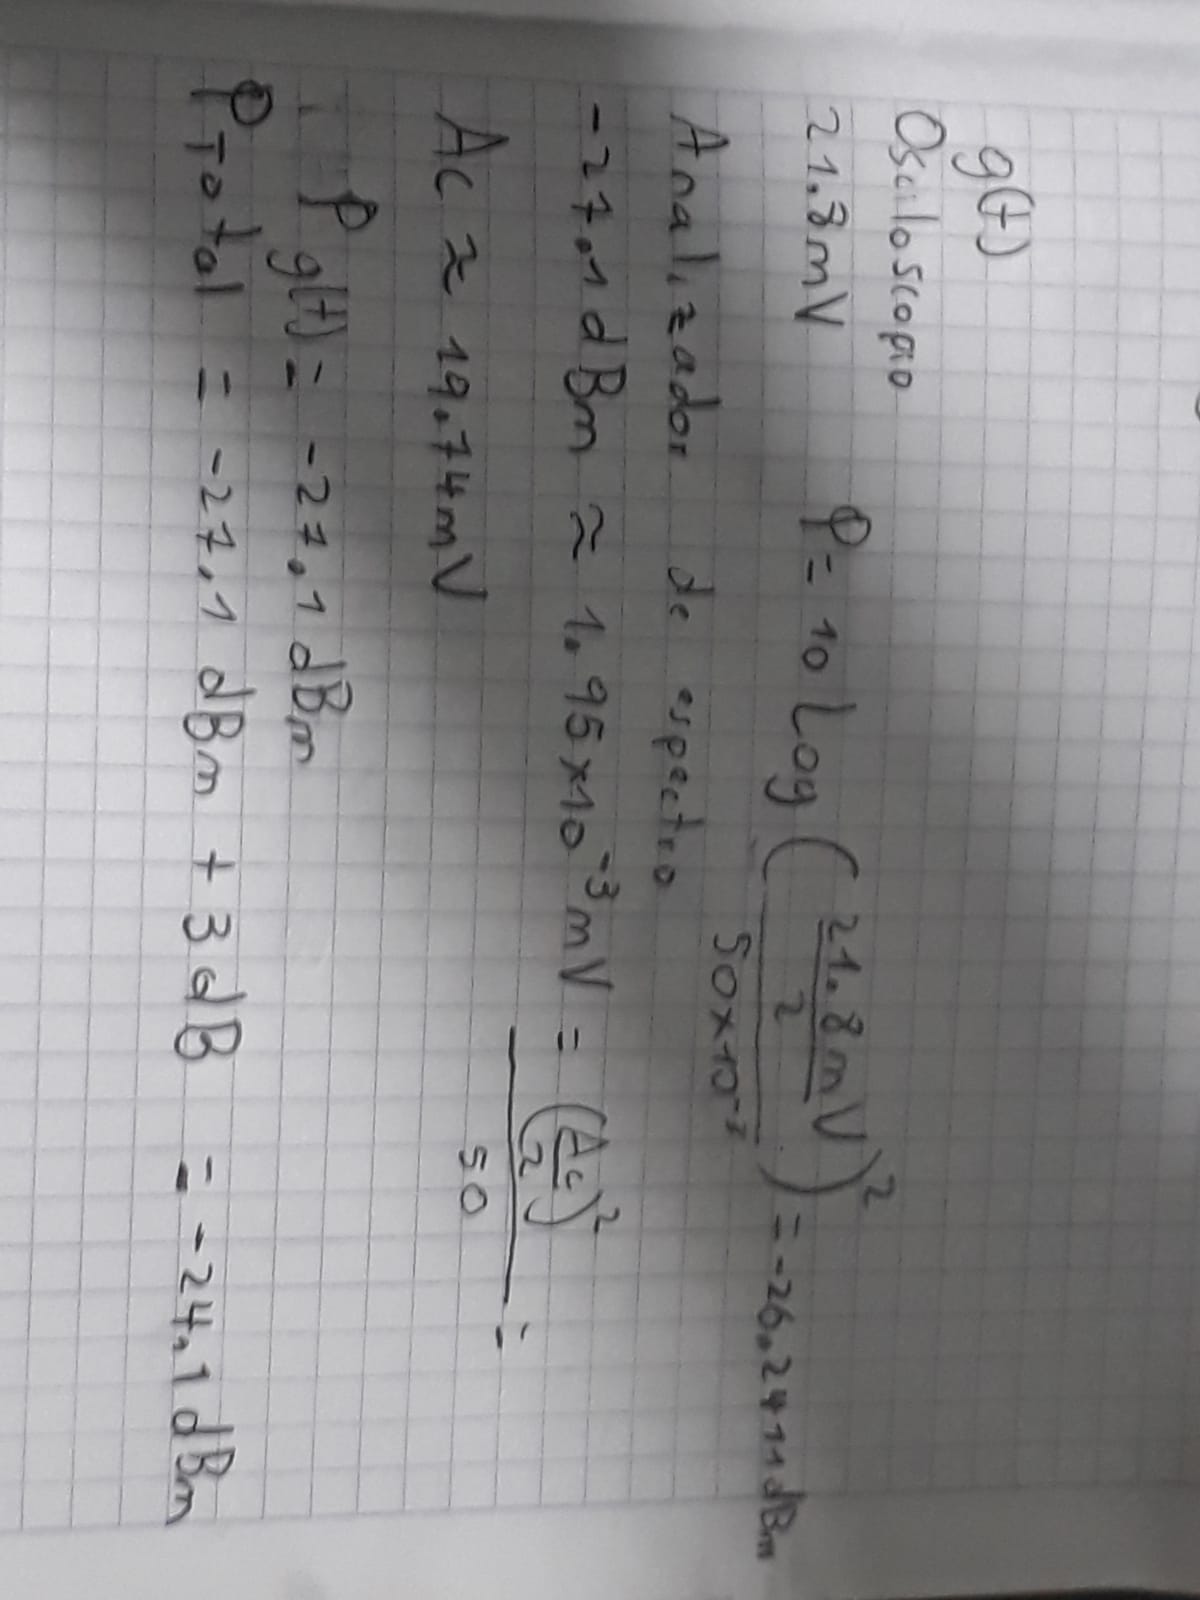 g(t)
Osciloscopio
21.8mV P= 10 Log ( (21.8mV/2)² / 50×10⁻³ ) = -26.2411dBm
Analizador de espectro
-27,1dBm ≈ 1.95×10⁻³mV = (Ac/2)² / 50 =
Ac ≈ 19.74mV
P g(t) = -27,1dBm
P Total = -27,1 dBm + 3dB = -24,1dBm